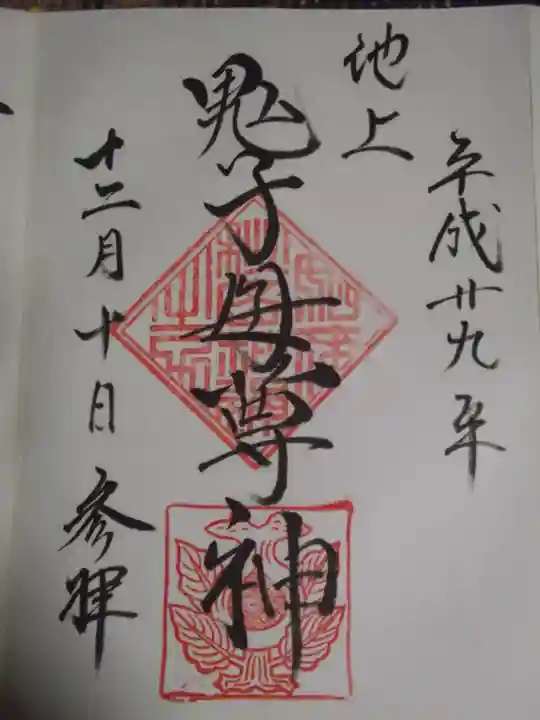 平成廿九年
池上
鬼子母尊神
十二月十日参拝